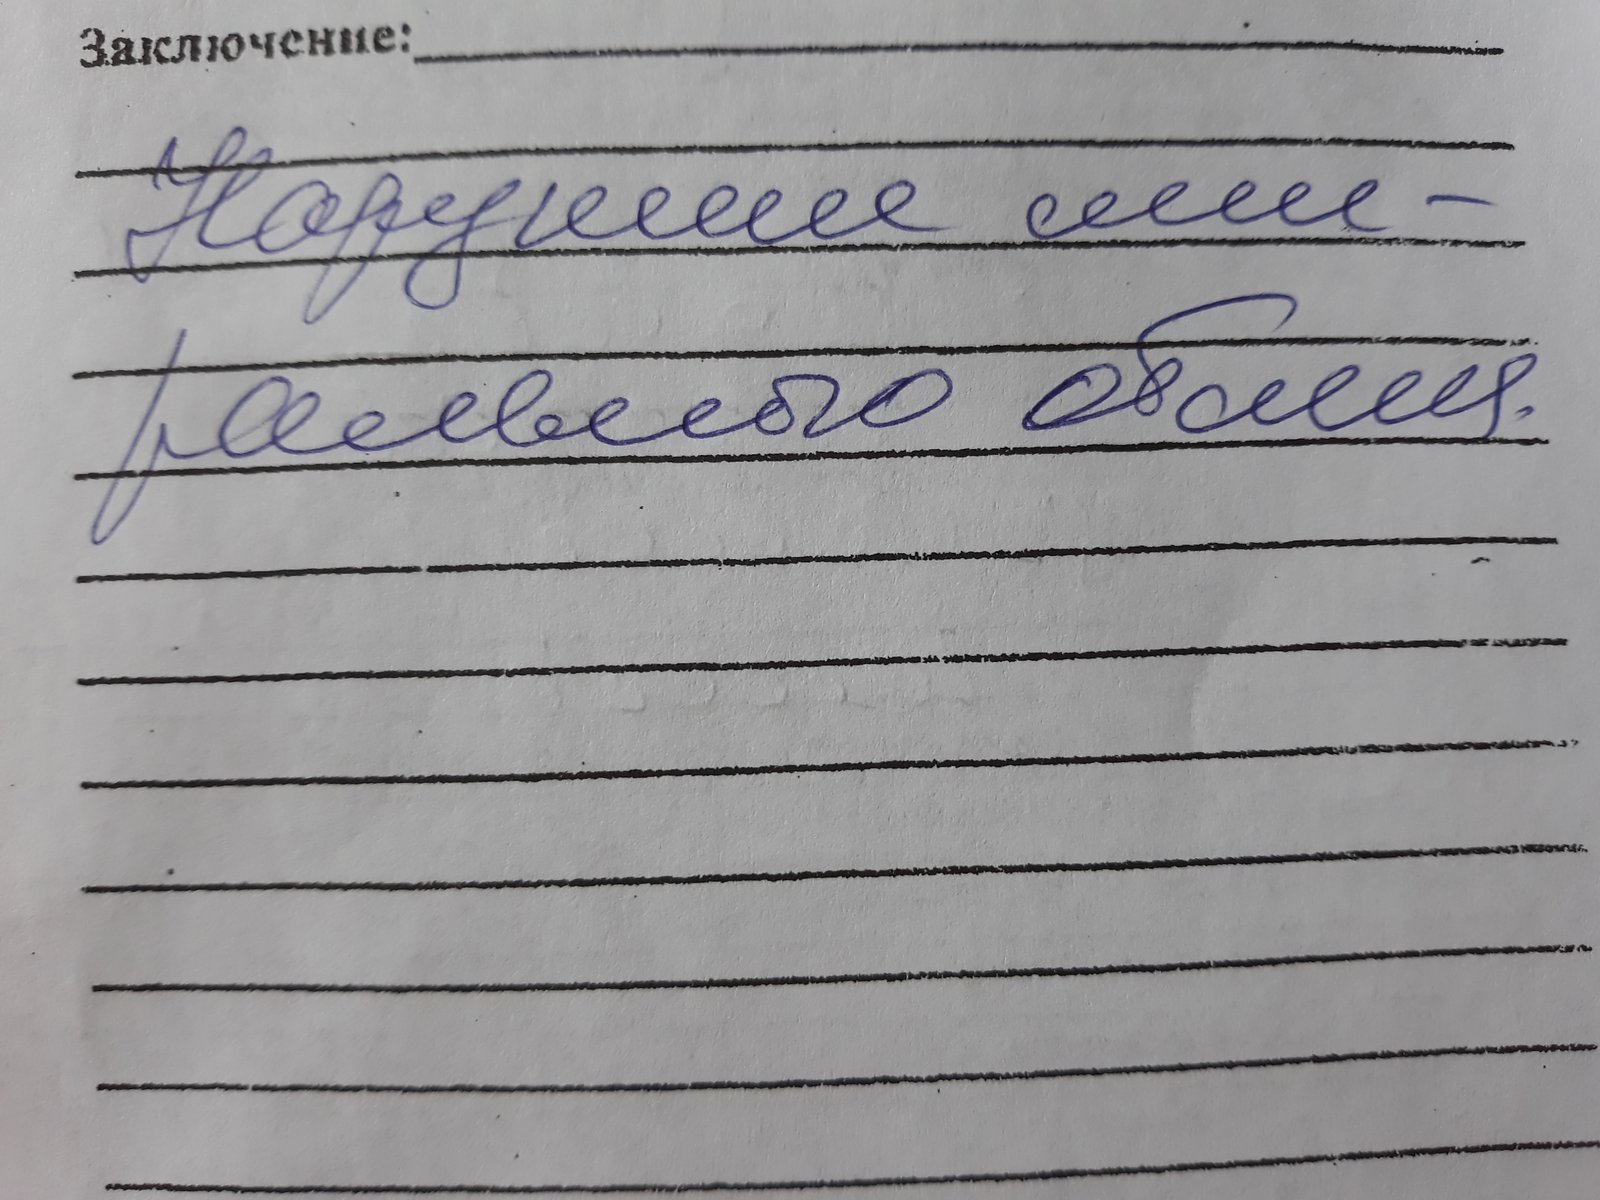 Заключение:
Нарушение мине-
рального обмена.